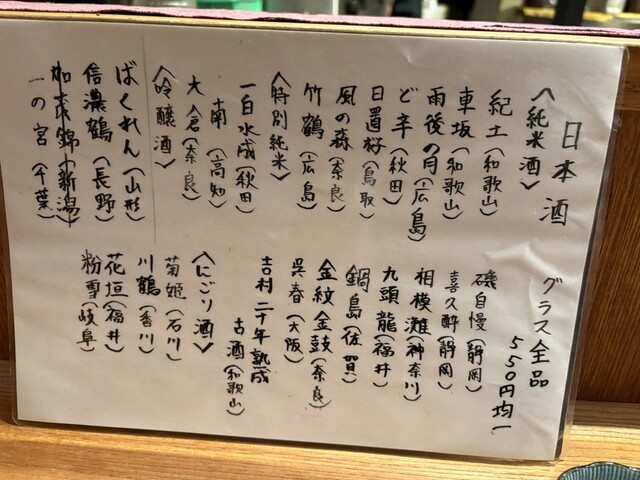 日本酒
グラス全品
550円均一
〈純米酒〉
紀土(和歌山)
車坂(和歌山)
雨後の月(広島)
ど辛(秋田)
日置桜(鳥取)
風の森(奈良)
竹鶴(広島)
〈特別純米〉
一白水成(秋田)
南(高知)
大倉(奈良)
〈吟醸酒〉
ばくれん(山形)
信濃鶴(長野)
加茂錦(新潟)
一の宮(千葉)
磯自慢(静岡)
喜久酔(静岡)
相模灘(神奈川)
九頭龍(福井)
鍋島(佐賀)
金紋金鼓(奈良)
呉春(大阪)
吉村二十年熟成
古酒(和歌山)
〈にごり酒〉
菊姫(石川)
川鶴(香川)
花垣(福井)
粉雪(岐阜)